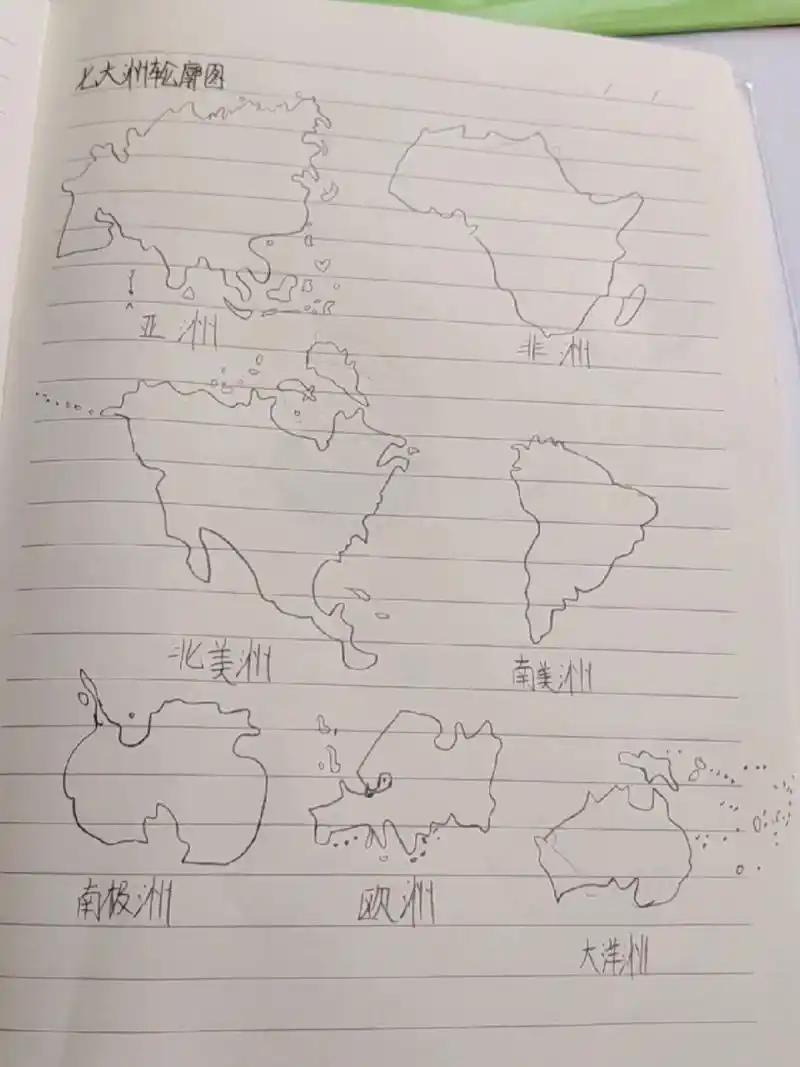 七大洲轮廓图
亚洲
非洲
北美洲
南美洲
南极洲
欧洲
大洋洲